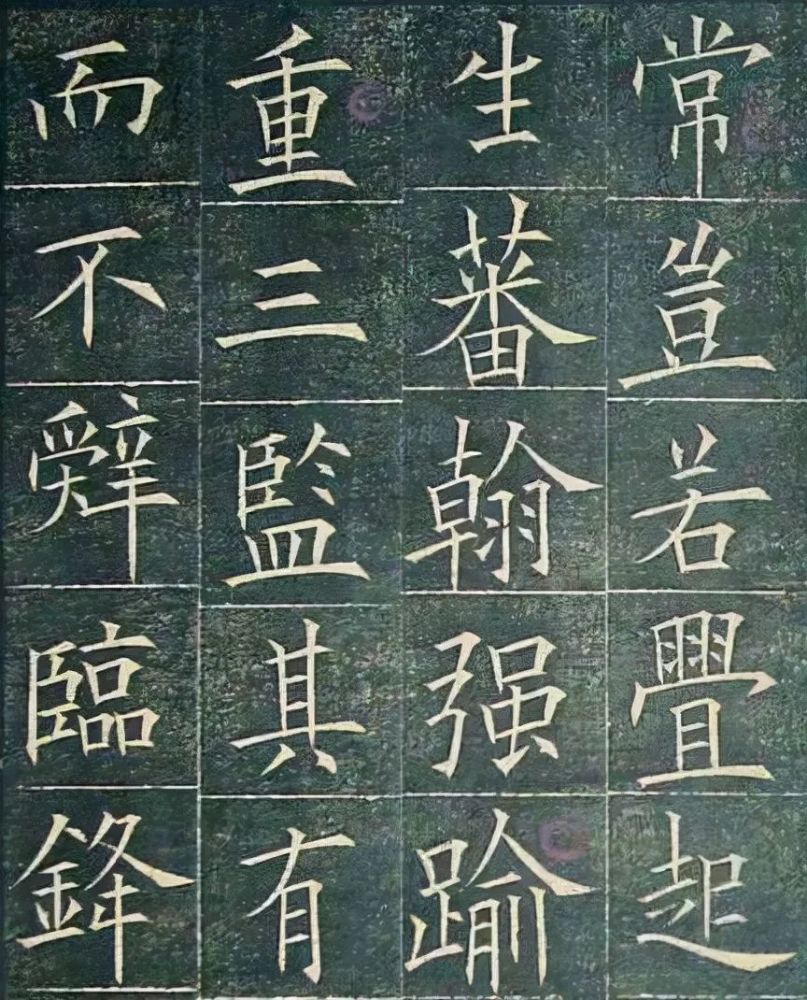 常豈若舋起
生蕃翰强踰
重三監其有
而不辤臨鋒